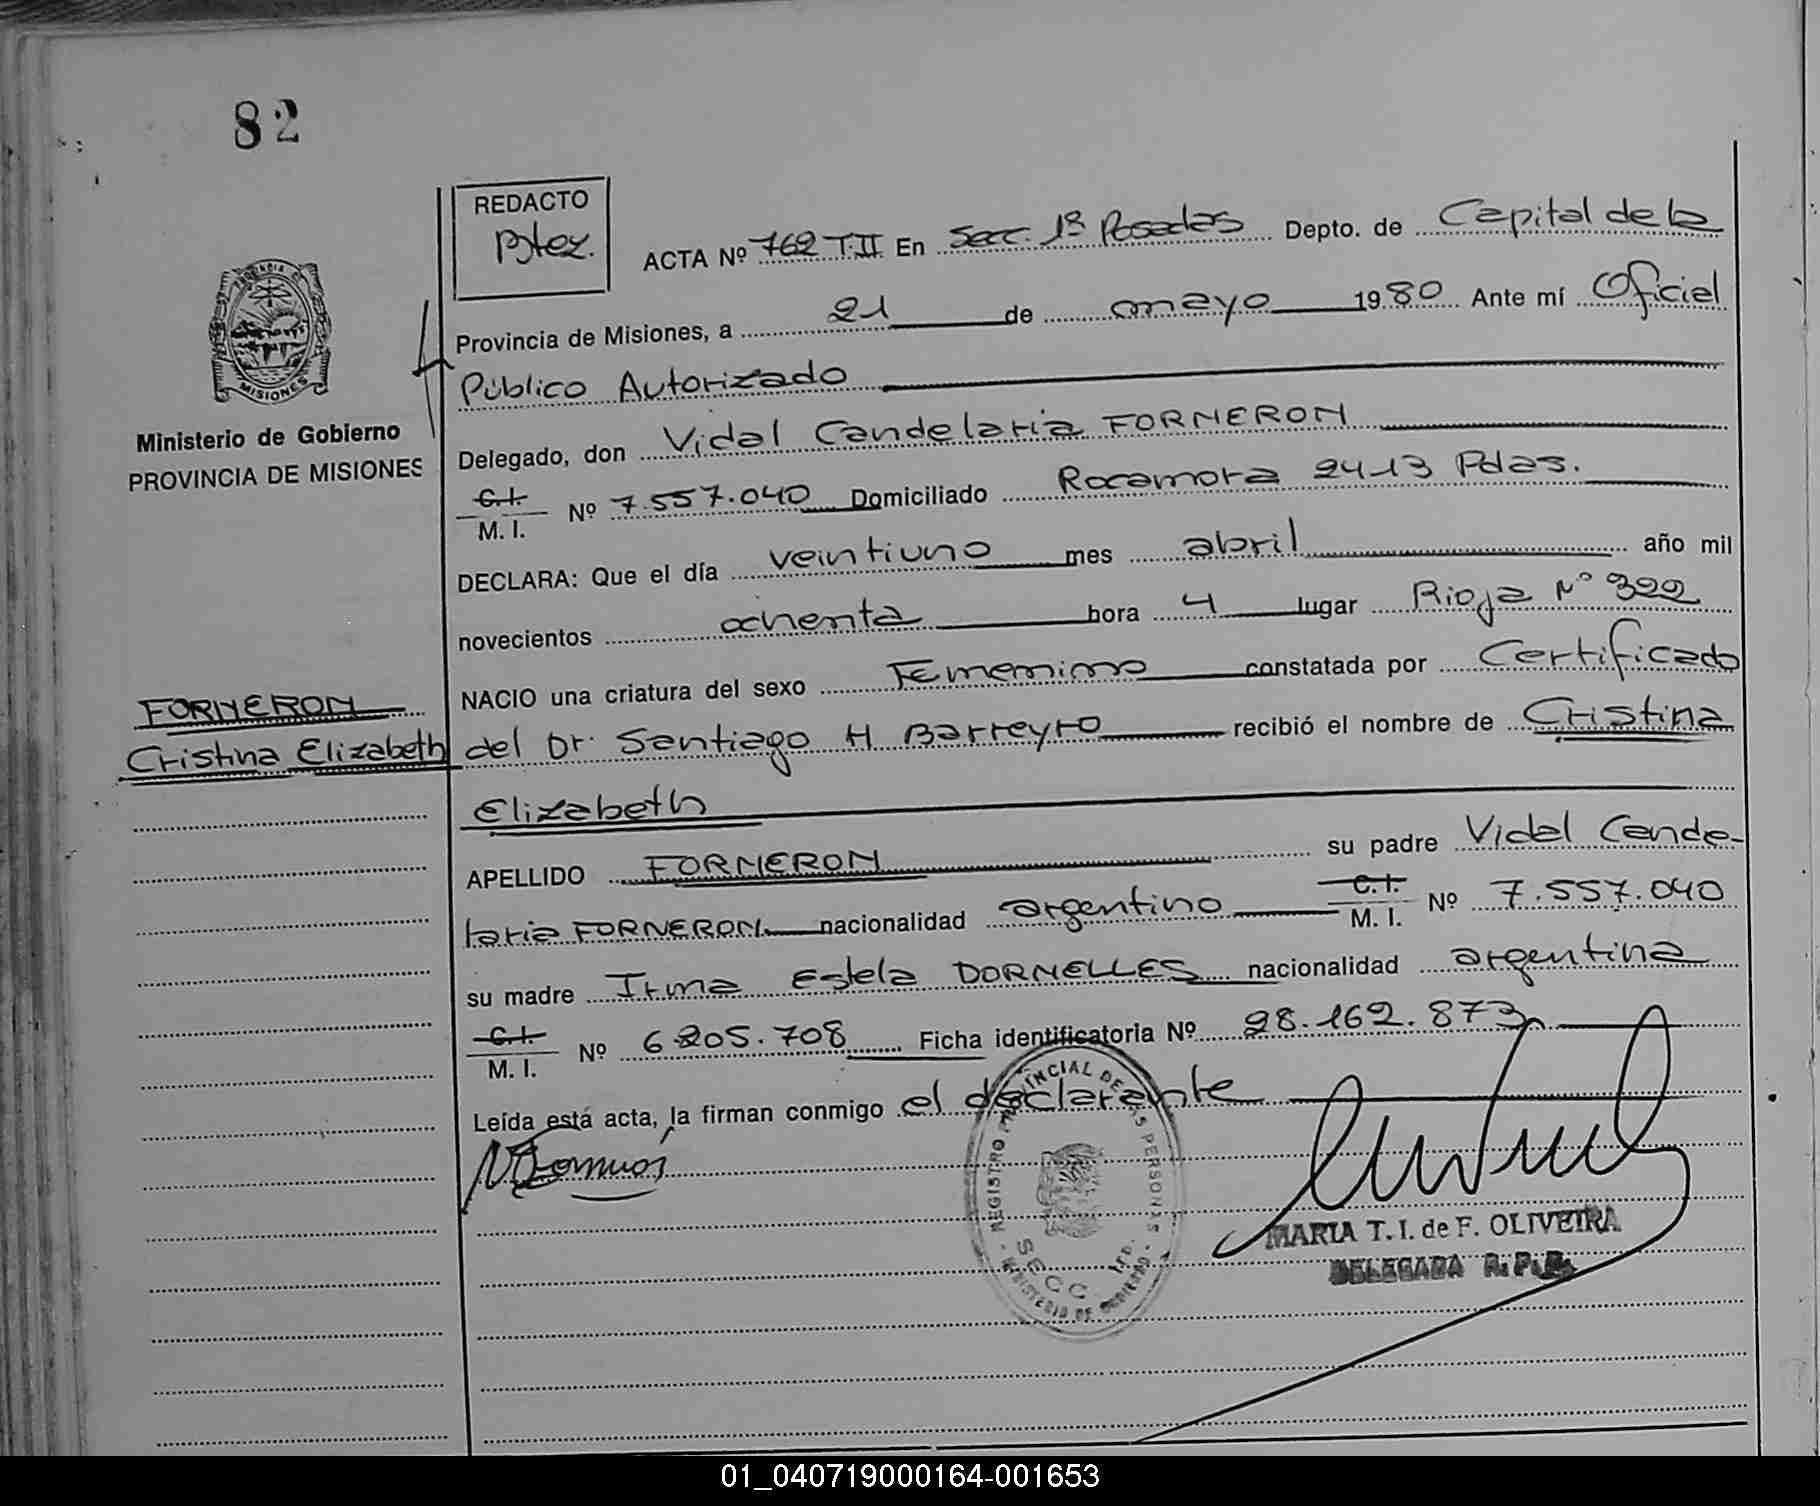 82
REDACTO
ACTA Nº 762 T.II En Secc. 1ª Posadas Depto. de Capital de la
Provincia de Misiones, a 21 de mayo 1980 Ante mí Oficial
Público Autorizado
PROVINCIA DE MISIONES
Ministerio de Gobierno
PROVINCIA DE MISIONES
Delegado, don Vidal Candelaria FORNERON
C.I.
M. I. Nº 7.557.040 Domiciliado Rocamora 2413 Pdas.
DECLARA: Que el día veintiuno mes abril año mil
novecientos ochenta hora 4 lugar Rioja Nº 322
NACIO una criatura del sexo Femenino constatada por Certificado
FORNERON
Cristina Elizabeth
del Dr. Santiago H Barreyro recibió el nombre de Cristina
Elizabeth
APELLIDO FORNERON su padre Vidal Cande-
laria FORNERON nacionalidad argentino C.I.
M. I. Nº 7.557.040
su madre Irma Estela DORNELLES nacionalidad argentina
C.I.
M. I. Nº 6.205.708 Ficha identificatoria Nº 28.162.873
Leída está acta, la firman conmigo el declarante
REGISTRO PROVINCIAL DE LAS PERSONAS
SECC. 1ra.
MINISTERIO DE GOBIERNO
MARIA T. I. de F. OLIVEIRA
DELEGADA R. P. P.
01_040719000164-001653